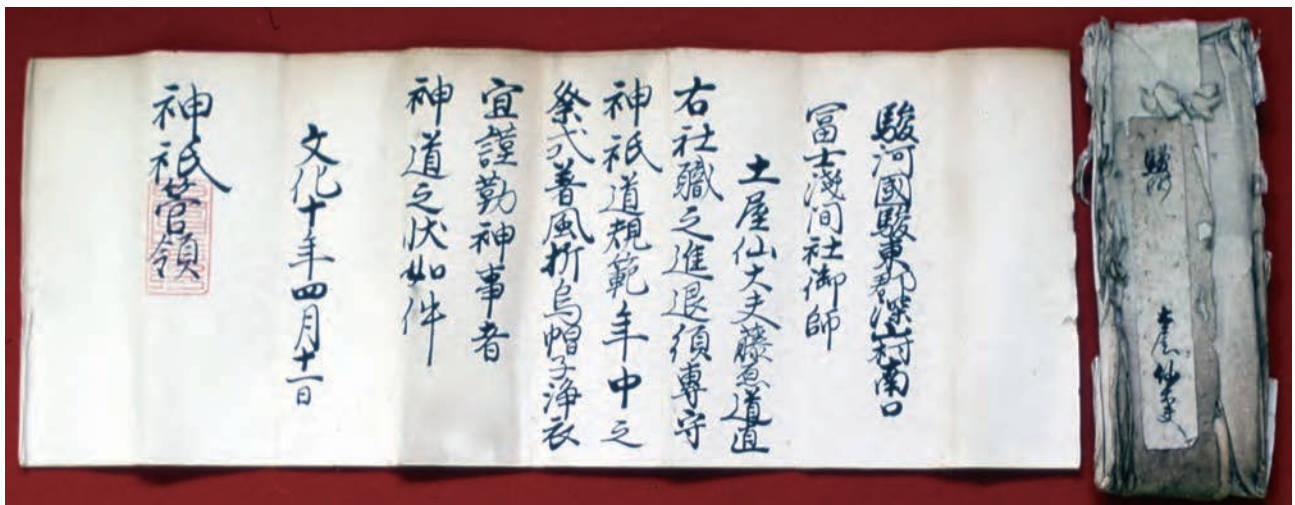 駿河國駿東郡深山村南口
冨士淺间社御師
土屋仙大夫藤原道直
右社職之進退須專守
神祇道規範年中之
祭式著風折烏帽子淨衣
宜謹勤神事者
神道之状如件
文化十年四月十一日
神祇管領
駿河
土屋仙大夫